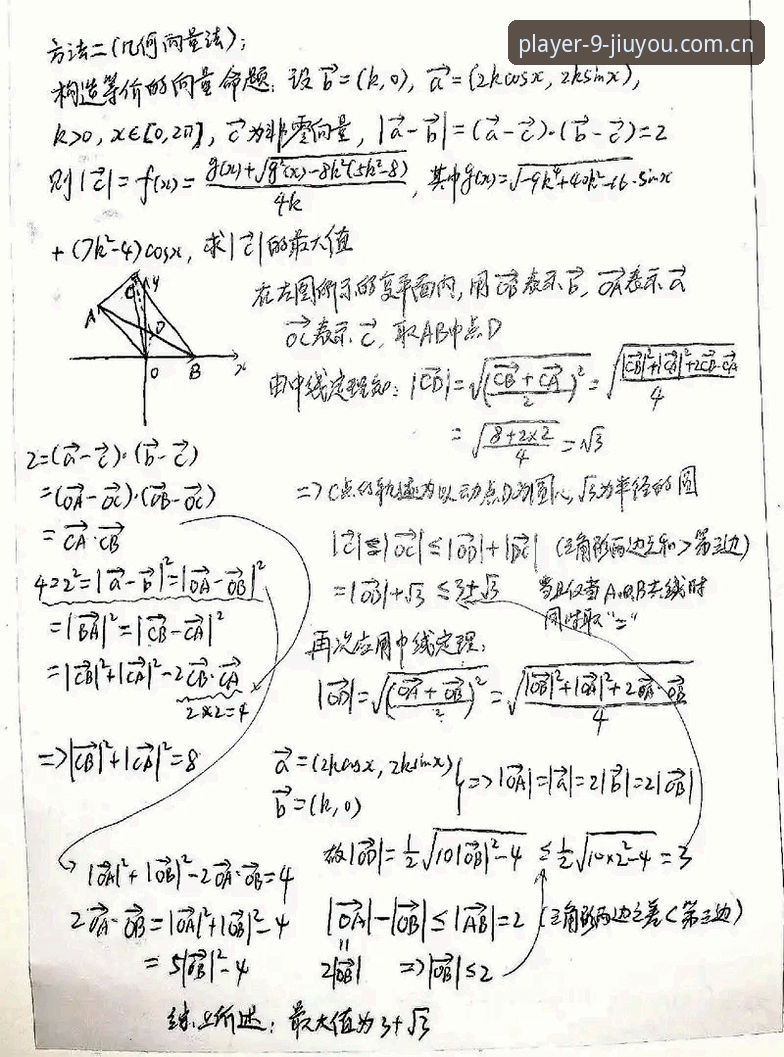 player-9-jiuyou.com.cn
方法二(几何向量法):
构造等价的向量命题: 设 b⃗=(k,0), a⃗=(2kcosx, 2ksinx),
k>0, x∈[0,2π], c⃗为非零向量, |a⃗-b⃗|=(a⃗-c⃗)·(b⃗-c⃗)=2
则|c⃗|=f(x)=(g(x)+√(g²(x)-8k²(5k²-8)))/4k, 其中g(x)=√(-9k⁴+40k²-16)·sinx
+(7k²-4)cosx, 求|c⃗|的最大值
C y
A
D
O B x
在左图所示的复平面内, 用OB⃗表示b⃗, OA⃗表示a⃗
OC⃗表示c⃗, 取AB中点D
由中线定理知: |CD⃗|=√((CB⃗+CA⃗)/2)²=√((|CB⃗|²+|CA⃗|²+2CB⃗·CA⃗)/4)
=√((8+2×2)/4)=√3
2=(a⃗-c⃗)·(b⃗-c⃗)
=(OA⃗-OC⃗)·(OB⃗-OC⃗)
=CA⃗·CB⃗
4=2²=|a⃗-b⃗|²=|OA⃗-OB⃗|²
=|BA⃗|²=|CB⃗-CA⃗|²
=|CB⃗|²+|CA⃗|²-2CB⃗·CA⃗
2×2=4
=>|CB⃗|²+|CA⃗|²=8
=>C点的轨迹为以动点D为圆心,√3为半径的圆
|c⃗|=|OC⃗|≤|OD⃗|+|DC⃗| (三角形两边之和>第三边)
=|OD⃗|+√3≤3+√3 当且仅当A、O、B共线时
同时取"="
再次应用中线定理:
|OD⃗|=√((OA⃗+OB⃗)/2)²=√((|OB⃗|²+|OA⃗|²+2OA⃗·OB⃗)/4)
a⃗=(2kcosx, 2ksinx)
b⃗=(k,0)
}=>|OA⃗|=|a⃗|=2|b⃗|=2|OB⃗|
故|OD⃗|=½√(10|OB⃗|²-4)≤½√(10×2²-4)=3
|OA⃗|²+|OB⃗|²-2OA⃗·OB⃗=4
2OA⃗·OB⃗=|OA⃗|²+|OB⃗|²-4
=5|OB⃗|²-4
|OA⃗|-|OB⃗|≤|AB⃗|=2 (三角形两边之差<第三边)
=
2|OB⃗| =>|OB⃗|≤2
综上所述: 最大值为3+√3